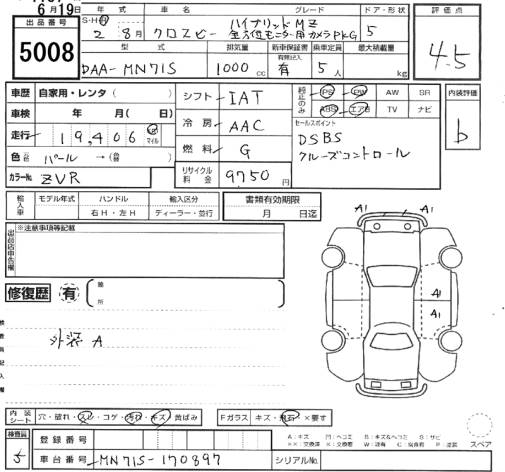 6月19日
出品番号
5008
年式 車名 グレード ドア・形状
S・H・R 2 8月 クロスビー ハイブリッドMZ
全方位モニター用カメラPKG 5
型式 排気量 新車保証書 乗車定員 最大積載量
DAA-MN71S 1000cc 有 5人 kg
評価点
4.5
車歴 自家用・レンタ( )
車検 年 月( 日)
走行 19,406 km マイル
色 パール →( )
カラーNo. ZVR
シフト IAT
冷房 AAC
燃料 G
リサイクル料金 9750 円
純正のみ PS PW AW SR
ABS エアB TV ナビ
セールスポイント
DSBS
クルーズコントロール
内装評価
b
輸入車 モデル年式 ハンドル 輸入区分
右H・左H ディーラー・並行
書類有効期限
月 日迄
※注意事項等記載
修復歴 有
箇所
外装 A
A1 A1
A1
A1
内装シート 穴・破れ・スレ・コゲ・汚れ・キズ・黄ばみ
Fガラス キズ・飛石・×要す
スペア
検査員
登録番号
車台番号 MN71S-170897
シリアルNo.